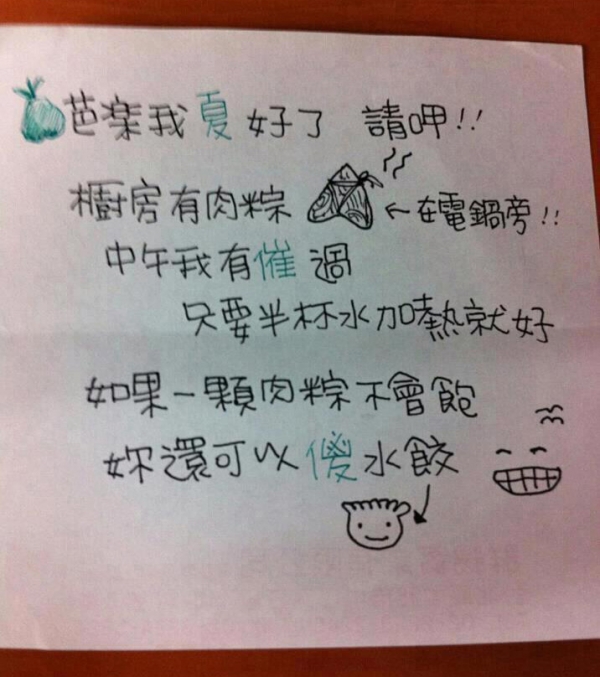 芭楽我夏好了 請呷!!
廚房有肉粽 ←在電鍋旁!!
中午我有催過
只要半杯水加熱就好
如果一顆肉粽不會飽
妳還可以傻水餃